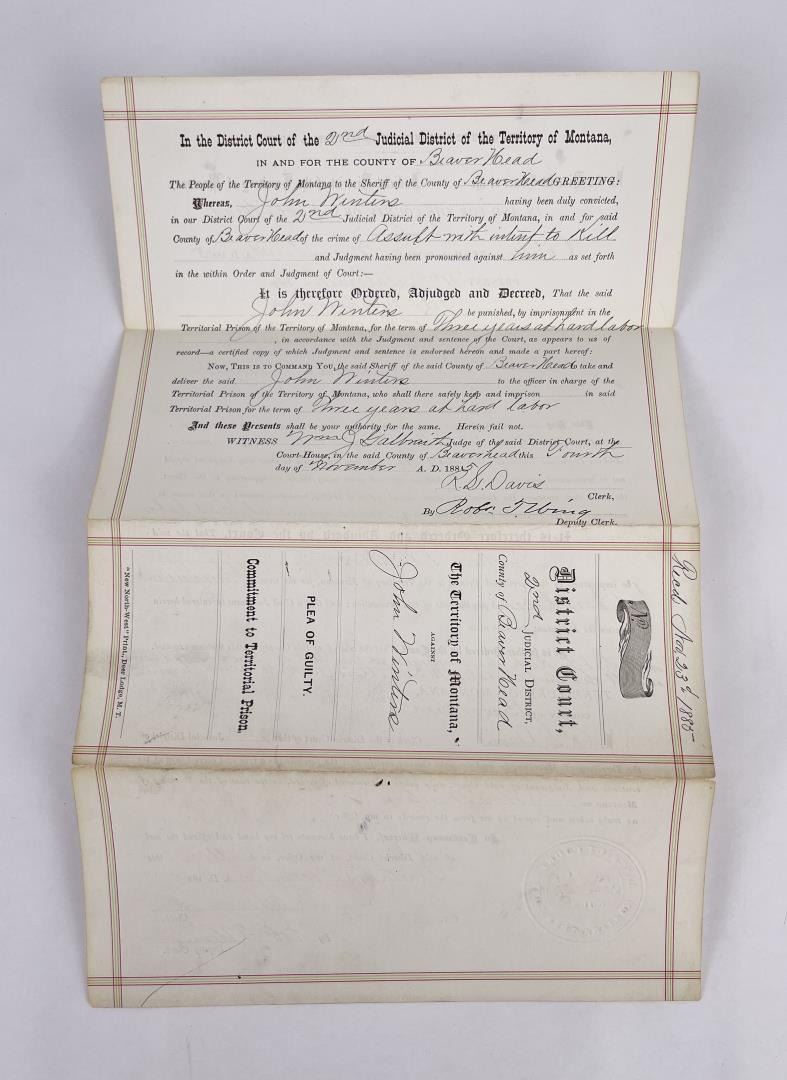 In the District Court of the 2nd Judicial District of the Territory of Montana,
IN AND FOR THE COUNTY OF Beaver Head
The People of the Territory of Montana to the Sheriff of the County of Beaver Head GREETING:
Whereas, John Winters having been duly convicted,
in our District Court of the 2nd Judicial District of the Territory of Montana, in and for said
County of Beaver Head of the crime of Assult with intent to Kill
and Judgment having been pronounced against him as set forth
in the within Order and Judgment of Court:—
It is therefore Ordered, Adjudged and Decreed, That the said
John Winters be punished, by imprisonment in the
Territorial Prison of the Territory of Montana, for the term of Three years at hard labor
, in accordance with the Judgment and sentence of the Court, as appears to us of
record—a certified copy of which Judgment and sentence is endorsed hereon and made a part hereof:
Now, THIS IS TO COMMAND YOU, the said Sheriff of the said County of Beaver Head take and
deliver the said John Winters to the officer in charge of the
Territorial Prison of the Territory of Montana, who shall there safely keep and imprison in said
Territorial Prison for the term of Three years at hard labor
And these Presents shall be your authority for the same. Herein fail not.
WITNESS Wm J Galbraith Judge of the said District Court, at the
Court-House, in the said County of Beaverhead this Fourth
day of November A. D. 1885
R. S. Davis
Clerk.
By Robt. T. Wing
Deputy Clerk.
Recd Nov 23d 1885
No
District Court,
2nd JUDICIAL DISTRICT,
County of Beaver Head
The Territory of Montana,
AGAINST
John Winters
PLEA OF GUILTY.
Commitment to Territorial Prison.
"New North-West" Print., Deer Lodge, M. T.